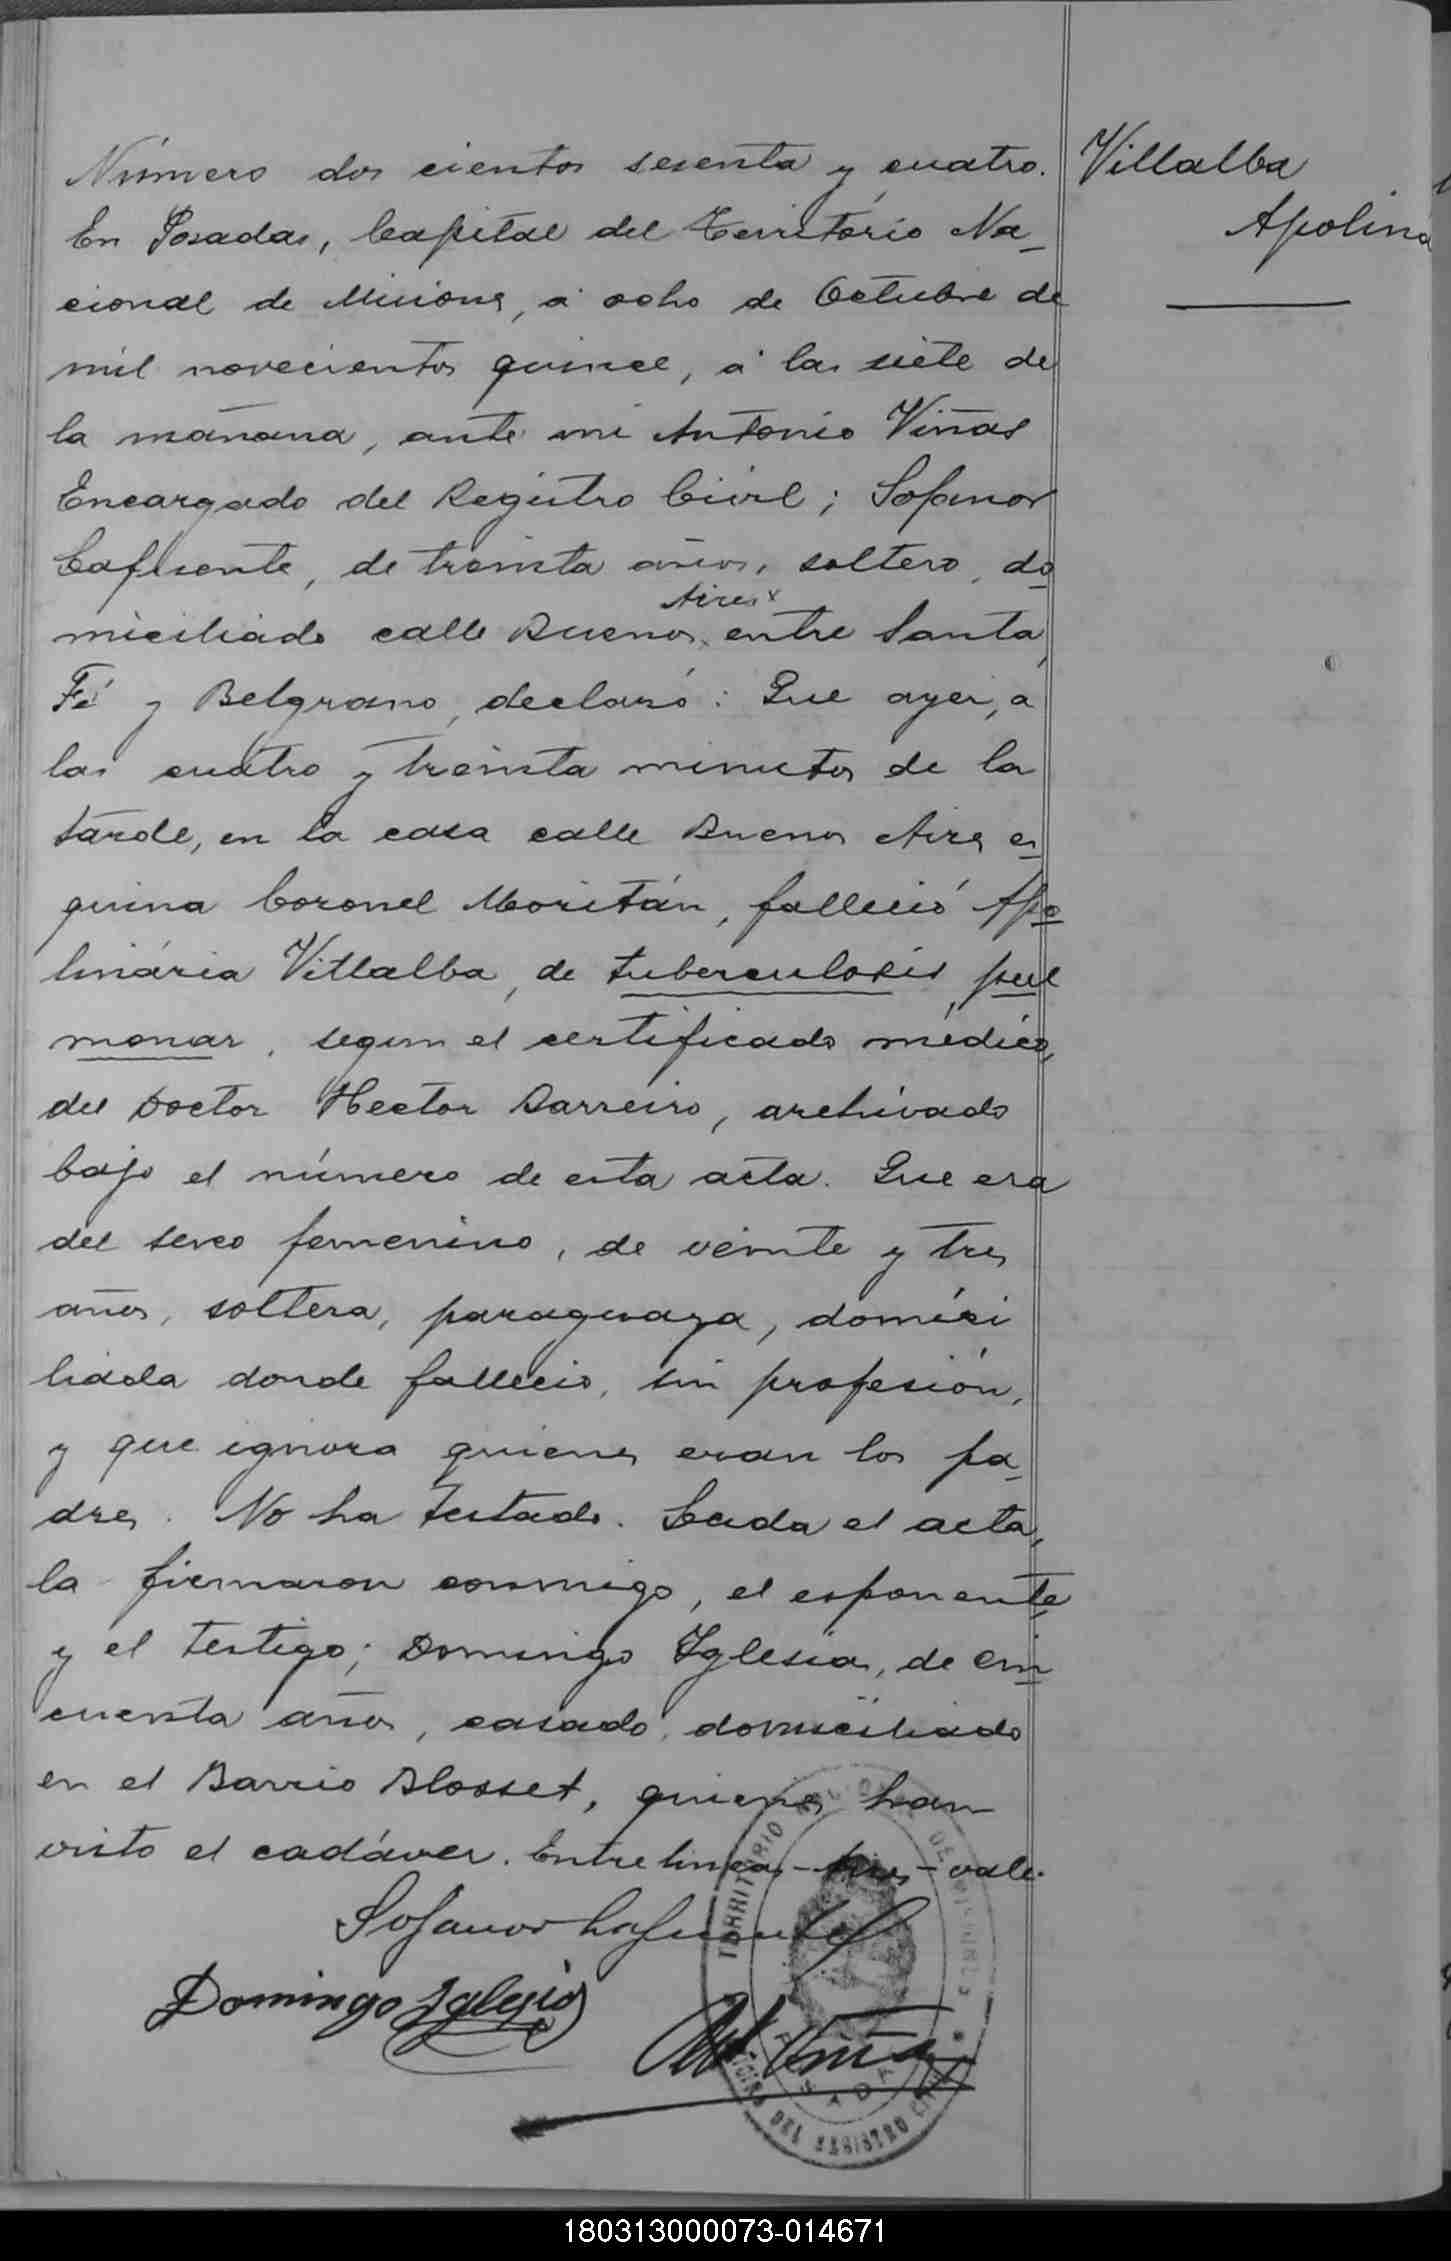 Número dos cientos sesenta y cuatro.
Villalba
Apolina
En Posadas, Capital del Territorio Na-
cional de Misiones, á ocho de Octubre de
mil novecientos quince, á las siete de
la mañana, ante mi Antonio Viñas
Encargado del Registro Civil; Sofanor
Lafuente, de treinta años, soltero, do-
miciliado calle Buenos Aires entre Santa
Fé y Belgrano, declaró: Que ayer, a
las cuatro y treinta minutos de la
tarde, en la casa calle Buenos Aires es-
quina Coronel Moritán, falleció Apo-
linária Villalba, de tuberculosis pul
monar, segun el certificado médico,
del Doctor Hector Barreiro, archivado
bajo el número de esta acta. Que era
del sexo femenino, de veinte y tres
años, soltera, paraguaya, domici
liada donde falleció, sin profesión,
y que ignora quienes eran los pa-
dres. No ha testado. Leida el acta,
la firmaron conmigo, el esponente,
y el testigo; Domingo Yglesias, de cin-
cuenta años, casado, domiciliado
en el Barrio Blosset, quienes han
visto el cadáver. Entre lineas - Aires - vale.
Sofanor Lafuente
Domingo Iglesias
Ant Viñas
TERRITORIO NACIONAL DE MISIONES
POSADAS
OFICINA DEL REGISTRO CIVIL
180313000073-014671